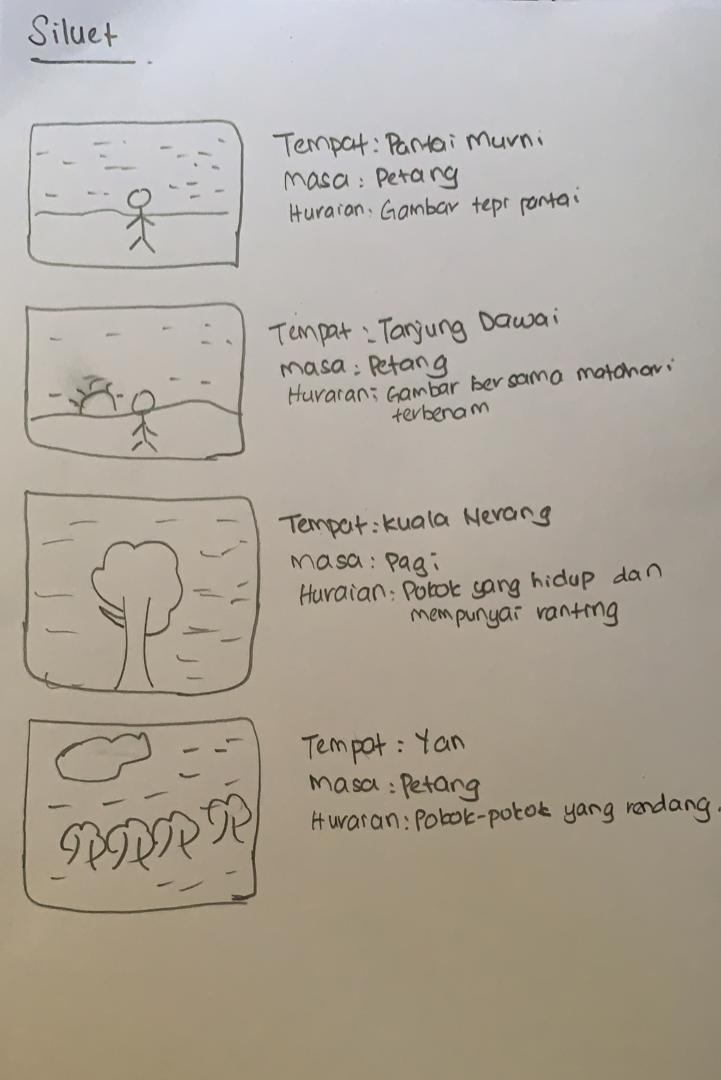 Siluet
Tempat : Pantai Murni
Masa : Petang
Huraian : Gambar tepi pantai
Tempat : Tanjung Dawai
Masa : Petang
Huraian : Gambar bersama matahari
terbenam
Tempat : Kuala Nerang
Masa : Pagi
Huraian : Pokok yang hidup dan
mempunyai ranting
Tempat : Yan
Masa : Petang
Huraian : Pokok-pokok yang rendang.